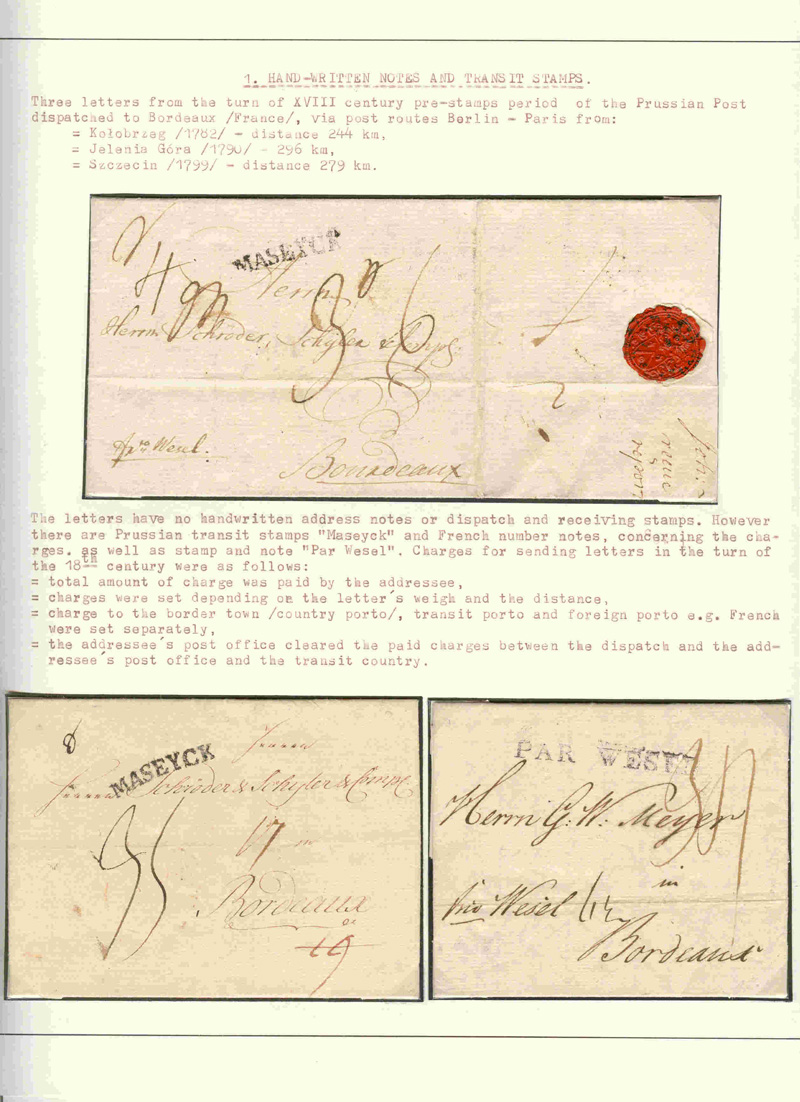 1. HAND-WRITTEN NOTES AND TRANSIT STAMPS.
Three letters from the turn of XVIII century pre-stamps period of the Prussian Post
dispatched to Bordeaux /France/, via post routes Berlin - Paris from:
= Kołobrzeg /1782/ - distance 244 km,
= Jelenia Góra /1790/ - 296 km,
= Szczecin /1799/ - distance 279 km.
MASEYCK
Herrn
Herrn Schröder, Schyler & Comp.
36
pro Wesel.
Bourdeaux
The letters have no handwritten address notes or dispatch and receiving stamps. However
there are Prussian transit stamps "Maseyck" and French number notes, concerning the cha-
rges. as well as stamp and note "Par Wesel". Charges for sending letters in the turn of
the 18th century were as follows:
= total amount of charge was paid by the addressee,
= charges were set depending on the letter's weigh and the distance,
= charge to the border town /country porto/, transit porto and foreign porto e.g. French
were set separately,
= the addressee's post office cleared the paid charges between the dispatch and the add-
ressee's post office and the transit country.
MASEYCK
Schröder & Schyler & Comp.
Bordeaux
PAR WESEL
Herrn G. W. Meyer
in
pro Wesel
Bordeaux